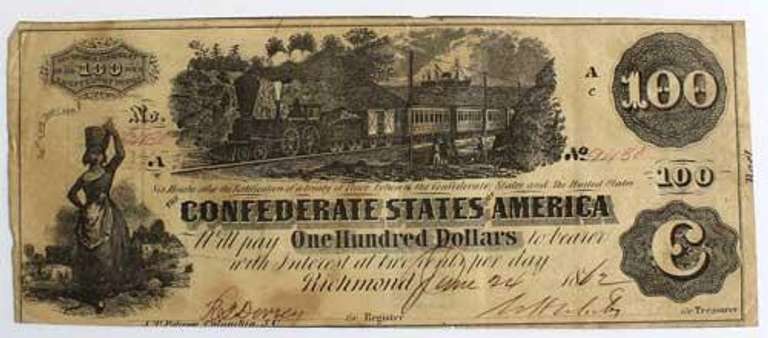 100
100
No.
A
A
c
No 
Six Months after the Ratification of a Treaty of Peace between the Confederate States and The United States
THE CONFEDERATE STATES OF AMERICA
Will pay One Hundred Dollars to bearer
with Interest at two cents per day
Richmond June 24 1862
100
C
for Register
for Treasurer
Columbia, S.C.